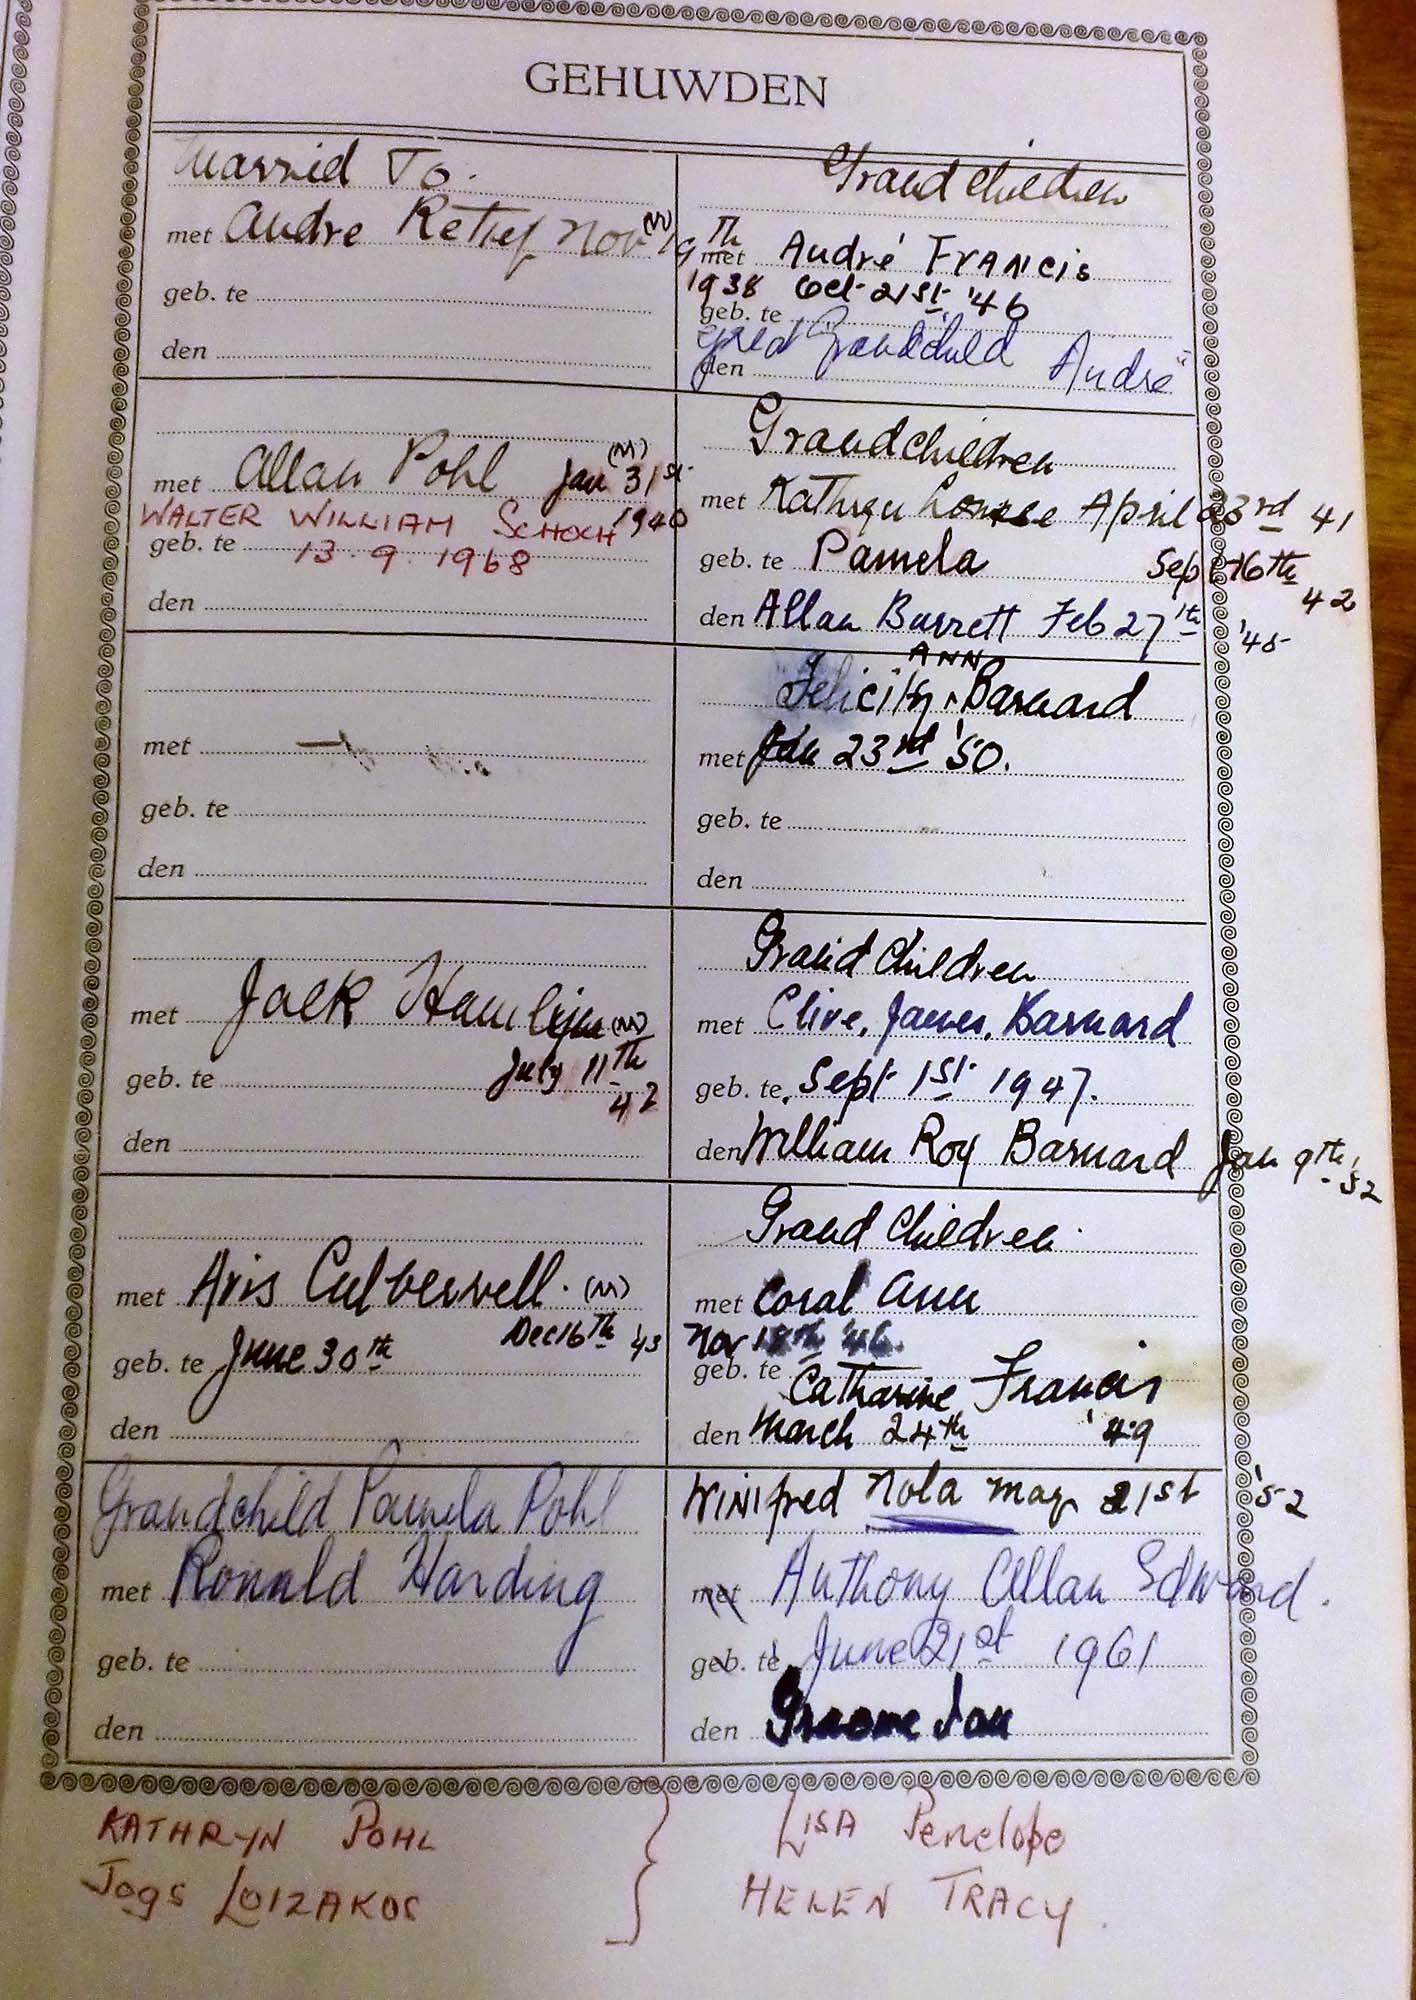 GEHUWDEN
Married To.
met Andre Retief Nov (M) 19th
geb. te
den
Grand children
met André FRANCIS
1938 Oct 21st '46
geb. te
Grandchild André
den
met Allan Pohl (M) Jan 31st
1940
WALTER WILLIAM SCHOCH
geb. te 13.9.1968
den
Grandchildren
met Kathryn Louise April 23rd 41
geb. te Pamela Sept 16th
42
den Allan Barrett Feb 27th '45
met
geb. te
den
ANN
Felicity Barnard
met Jan 23rd '50.
geb. te
den
met Jack Hamlyn (M)
geb. te July 11th
42
den
Grand Children
met Clive, James, Barnard
geb. te, Sept 1st 1947.
den William Roy Barnard Jan 9th '52
met Avis Culverwell. (M)
Dec 16th '43
geb. te June 30th
den
Grand Children
met Coral Ann
Nov 18th '46.
geb. te Catharine Francis
den March 24th '49
Grandchild Pamela Pohl
met Ronald Harding
geb. te
den
Winifred Nola May 21st '52
met Anthony Allan Edward.
geb. te June 21st 1961
den Graeme Ian
KATHRYN POHL } LISA Penelope
Jogs LOIZAKOS HELEN TRACY.